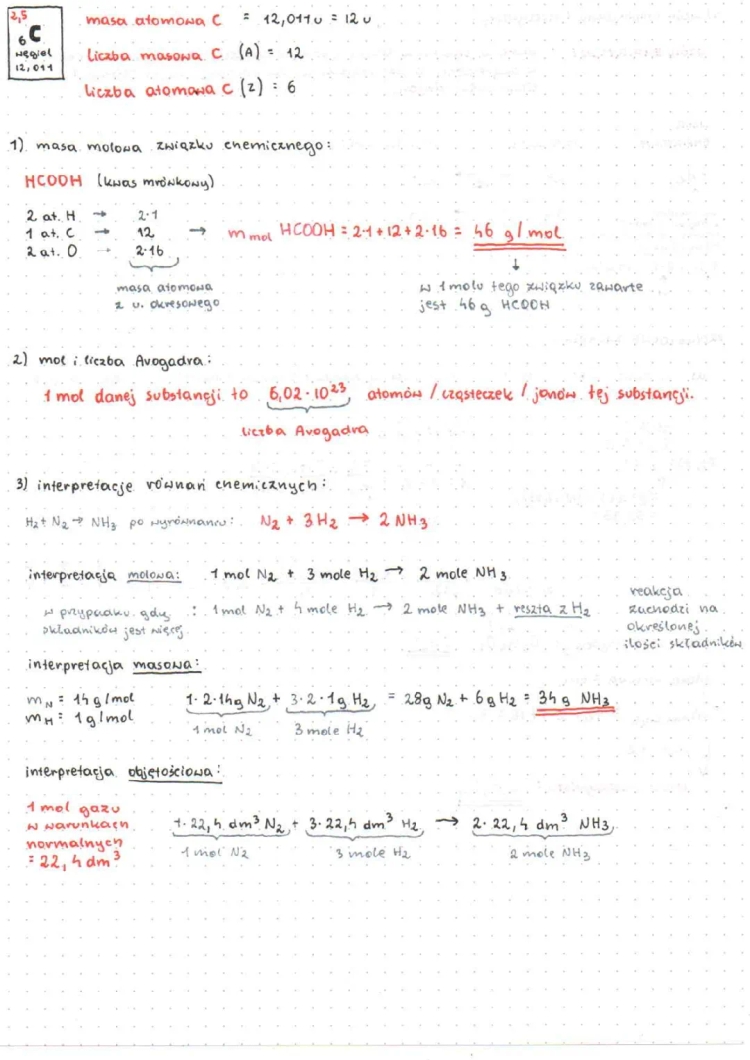 2,5
6 C
węgiel
12,011
masa atomowa C = 12,011u = 12u
liczba masowa C (A) = 12
liczba atomowa C (Z) = 6
1) masa molowa związku chemicznego:
HCOOH (kwas mrówkowy)
2 at. H → 2·1
1 at. C → 12
2 at. O → 2·16
→ m mol HCOOH = 2·1+12+2·16 = 46 g/mol
masa atomowa
z u. okresowego
↓
w 1 molu tego związku zawarte
jest 46 g HCOOH
2) mol i liczba Avogadra:
1 mol danej substancji to 6,02·10²³ atomów / cząsteczek / jonów tej substancji.
liczba Avogadra
3) interpretacje równań chemicznych:
H₂ + N₂ → NH₃ po wyrównaniu: N₂ + 3H₂ → 2NH₃
interpretacja molowa: 1 mol N₂ + 3 mole H₂ → 2 mole NH₃
w przypadku gdy
składników jest więcej
: 1 mol N₂ + 4 mole H₂ → 2 mole NH₃ + reszta z H₂
reakcja
zachodzi na
określonej
ilości składników
interpretacja masowa:
mN = 14 g/mol
mH = 1 g/mol
1·2·14g N₂ + 3·2·1g H₂ = 28g N₂ + 6g H₂ = 34 g NH₃
1 mol N₂ 3 mole H₂
interpretacja objętościowa:
1 mol gazu
w warunkach
normalnych
= 22,4 dm³
1·22,4 dm³ N₂ + 3·22,4 dm³ H₂ → 2·22,4 dm³ NH₃
1 mol N₂ 3 mole H₂ 2 mole NH₃